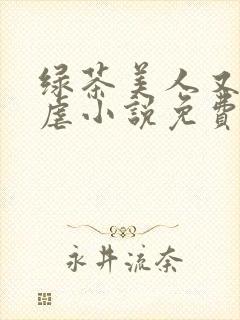 绿茶美人又
虐小說免費
永井流奈